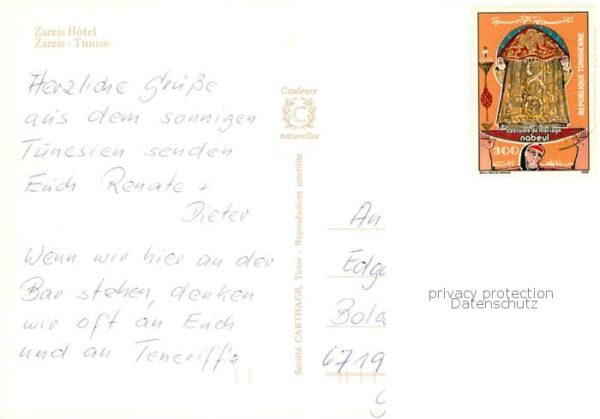 Zarzis Hôtel
Zarzis - Tunisie
Herzliche Grüße
aus dem sonnigen
Tunesien senden
Euch Renate +
Dieter
Wenn wir hier an der
Bar stehen, denken
wir oft an Euch
und an Teneriffa
Couleurs
C
naturelles
Société CARTHAGE, Tunis - Reproduction interdite
REPUBLIQUE TUNISIENNE
costume de mariage
nabeul
300
An
Edg
Bola
6719
privacy protection
Datenschutz